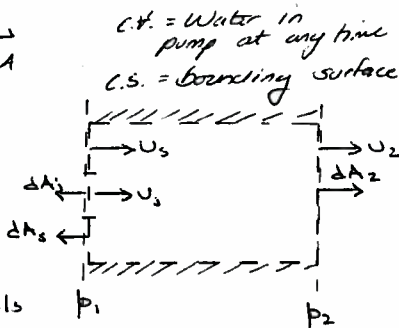 c.v. = Water in
pump at any time
A
c.s. = bounding surface
U_s
U_2
dA_j
U_j
dA_2
dA_s
ls
p_1
p_2